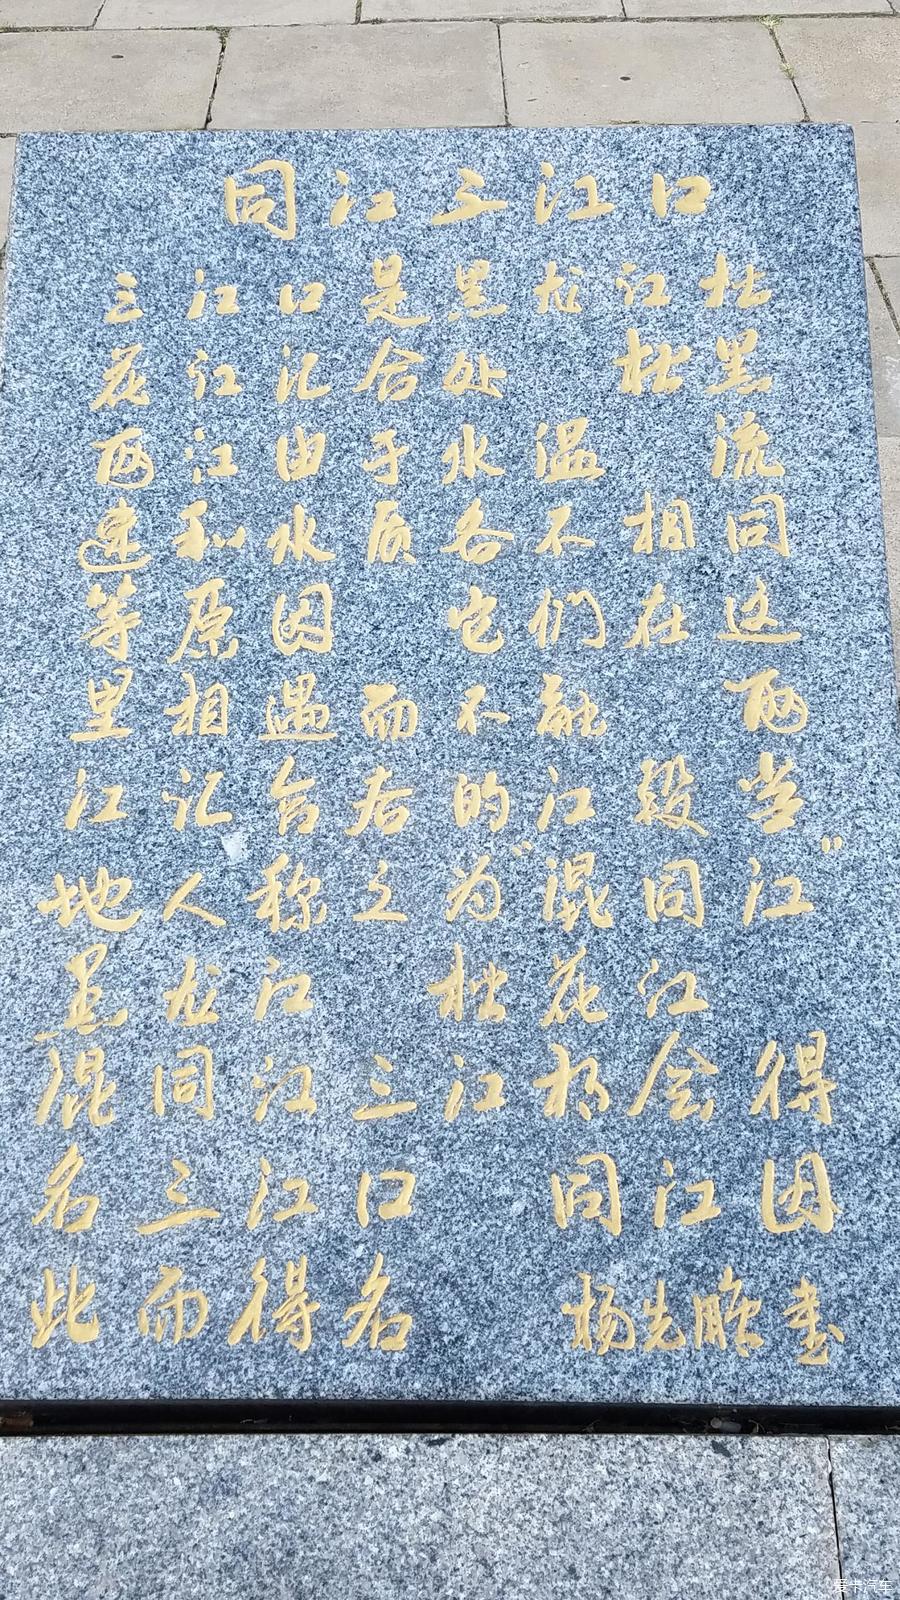 同江三江口
三江口是黑龙江松
花江汇合处 松黑
两江由于水温 流
速和水质各不相同
等原因 它们在这
里相遇而不融 两
江汇合后的江段当
地人称之为"混同江"
黑龙江 松花花江
混同江三江相会得
名三江口 同江因
此而得名 杨先瞻书
爱卡汽车